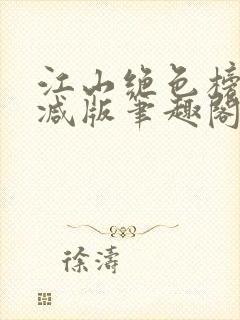 江山绝色榜
减版笔趣阁
徐涛